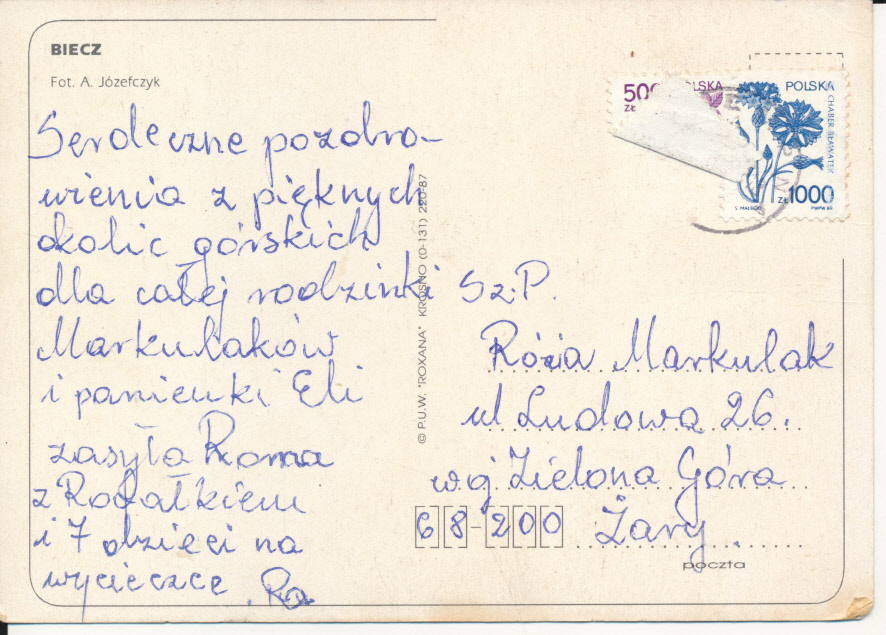 BIECZ
Fot. A. Józefczyk
Serdeczne pozdro-
wienia z pięknych
okolic górskich
dla całej rodzinki
Markulaków
i panienki Eli
zasyła Roma
z Rafałkiem
i 7 dzieci na
wycieczce. Ra
© P.U.W. "ROXANA" KROSNO (0-131) 220-87
500
ZŁ
POLSKA
CHABER BŁAWATEK
ZŁ 1000
S. MAŁECKI
PWPW 89
Sz.P.
Rózia Markulak
ul Ludowa 26.
woj Zielona Góra
68-200 Żary.
poczta